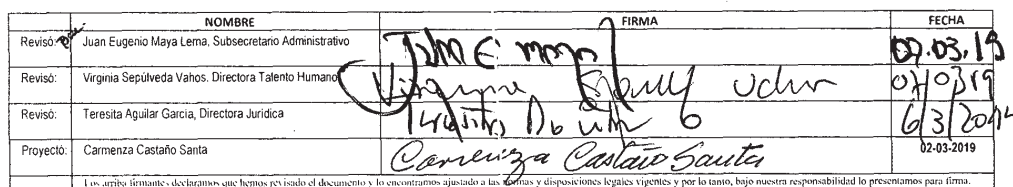 NOMBRE FIRMA FECHA
Revisó: Juan Eugenio Maya Lema, Subsecretario Administrativo 07.03.19
Revisó: Virginia Sepúlveda Vahos. Directora Talento Humano 07/03/19
Revisó: Teresita Aguilar Garcia, Directora Jurídica 6/3/20
Proyectó: Carmenza Castaño Santa Carmenza Castaño Santa 02-03-2019
Los arriba firmantes declaramos que hemos revisado el documento y lo encontramos ajustado a las normas y disposiciones legales vigentes y por lo tanto, bajo nuestra responsabilidad lo presentamos para firma.